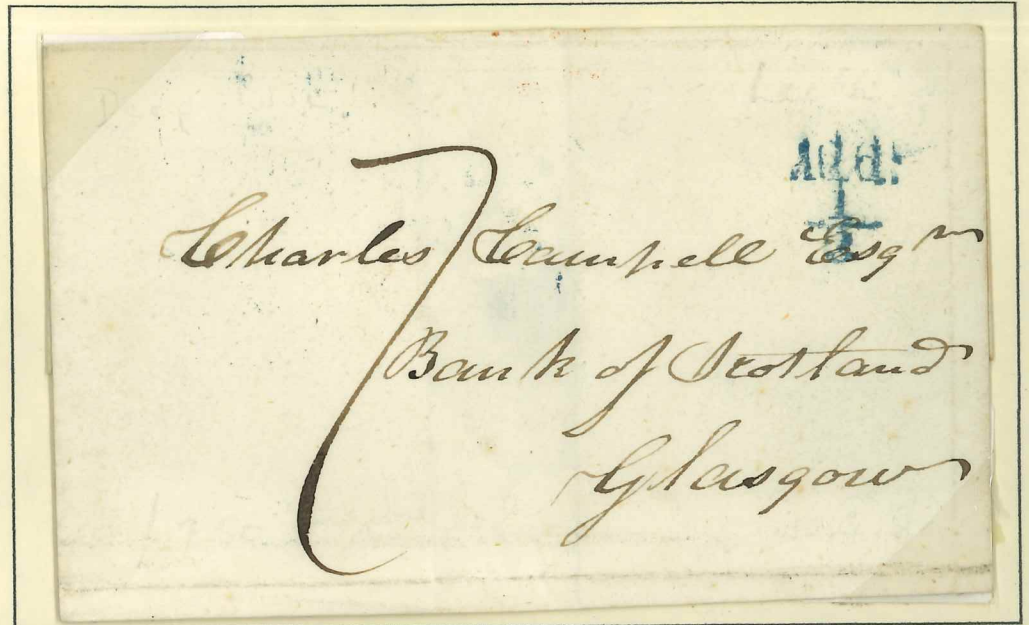 Add:
1/2
7
Charles Campbell Esqr
Bank of Scotland
Glasgow